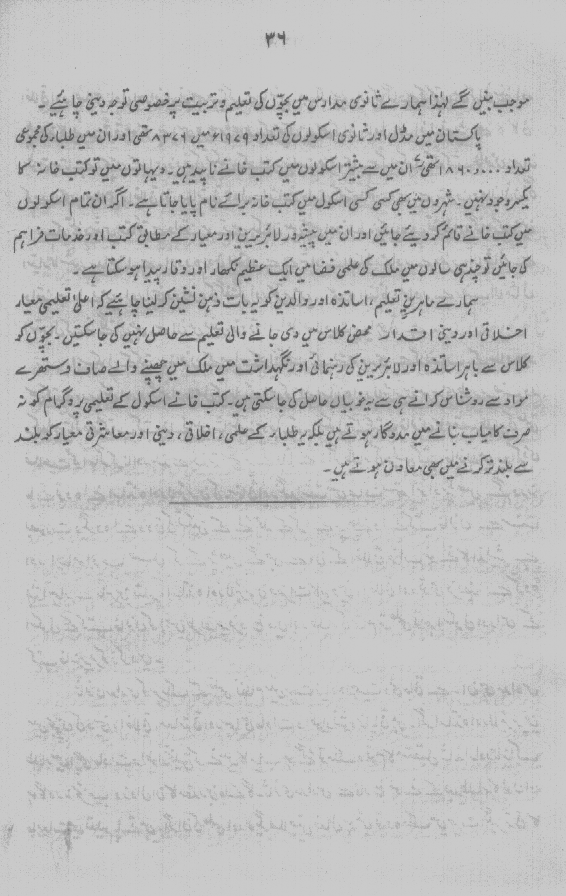 ۳۶
موجب بنیں گے لہٰذا ہمارے ثانوی مدارس میں بچّوں کی تعلیم و تربیت پر خصوصی توجہ دینی چاہئیے ۔
پاکستان میں مڈل اور ثانوی اسکولوں کی تعداد ۱۹۷۹ء میں ۸۳۷۶ تھی اور ان میں طلباء کی مجموعی
تعداد ۱۸۶۰۰۰۰ تھی ان میں سے بیشتر اسکولوں میں کتب خانے ناپید ہیں ۔ دیہاتوں میں تو کتب خانہ کا
یکسر وجود نہیں ۔ شہروں میں بھی کسی کسی اسکول میں کتب خانہ برائے نام پایا جاتا ہے ۔ اگر ان تمام اسکولوں
میں کتب خانے قائم کر دیئے جائیں اور ان میں پیشہ ور لائبریرین اور معیار کے مطابق کتب اور خدمات فراہم
کی جائیں تو چند ہی سالوں میں ملک کی علمی فضا میں ایک عظیم نکھار اور وقار پیدا ہو سکتا ہے ۔
ہمارے ماہرین تعلیم ، اساتذہ اور والدین کو یہ بات ذہن نشین کر لینا چاہئیے کہ اعلیٰ تعلیمی معیار
اخلاقی اور دینی اقدار محض کلاس میں دی جانے والی تعلیم سے حاصل نہیں کی جا سکتیں ۔ بچّوں کو
کلاس سے باہر اساتذہ اور لائبریرین کی رہنمائی اور نگہداشت میں ملک میں چھپنے والے صاف و ستھرے
مواد سے روشناس کرانے ہی سے یہ خوبیاں حاصل کی جا سکتی ہیں ۔ کتب خانے اسکول کے تعلیمی پروگرام کو نہ
صرف کامیاب بنانے میں مددگار ہوتے ہیں بلکہ یہ طلباء کے علمی ، اخلاقی ، دینی اور معاشرتی معیار کو بلند
سے بلند تر کرنے میں بھی معاون ہوتے ہیں ۔